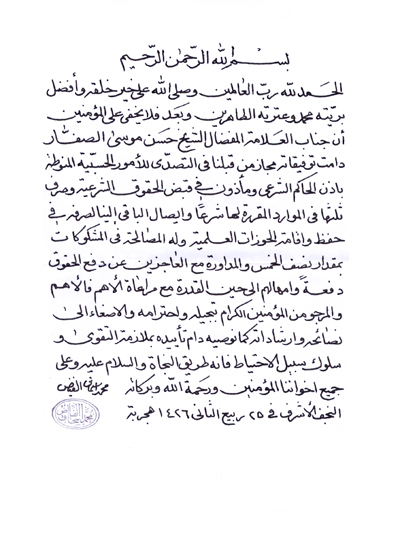 بسم الله الرحمن الرحيم
الحمد لله رب العالمين وصلى الله على خير خلقه وأفضل
بريته محمد وعترته الطاهرين وبعد فلا يخفى على المؤمنين
أن جناب العلامة المفضال الشيخ حسن موسى الصفار
دامت توفيقاته مجاز من قبلنا في التصدى للأمور الحسبية المنوطة
باذن الحاكم الشرعي ومأذون في قبض الحقوق الشرعية وصرف
ثلثها في الموارد المقررة لها شرعاً وايصال الباقي إلينا لصرفه في
حفظ واقامة الحوزات العلمية وله المصالحة في المشكوكات
بمقدار نصف الخمس والمداورة مع العاجزين عن دفع الحقوق
دفعةً وامهالهم الى حين القدرة مع مراعاة الأهم فالأهم
والمرجو من المؤمنين الكرام تبجيله واحترامه والاصغاء الى
نصائحه وارشاداته كما نوصيه دام تأييده بملازمة التقوى و
سلوك سبيل الاحتياط فانه طريق النجاة والسلام عليه وعلى
جميع اخواننا المؤمنين ورحمة الله وبركاته محمد اسحاق الفياض
النجف الأشرف في ٢٥ ربيع الثاني ١٤٢٦ هجرية